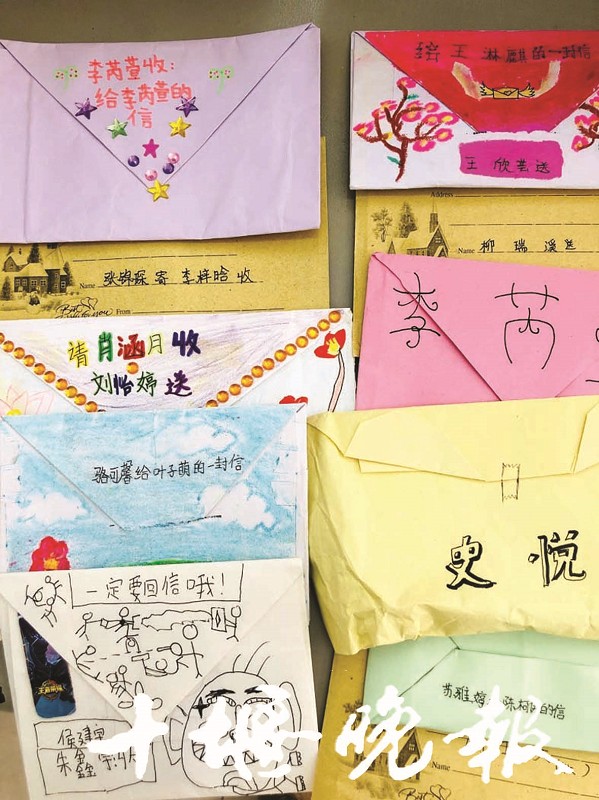 李芮萱收：
给李芮萱的
信
Name 张璟琛 寄 李梓晗 收
From
请肖涵月收
刘怡婷送
骆可馨给叶子萌的一封信
一定要回信哦！
王者荣耀
侯建
朱鑫
给王淋麒的一封信
王欣芸送
Address
Name 柳瑞溪送
李芮
史悦
芮雅婷 陈柯 的信
Name
From
十堰晚报